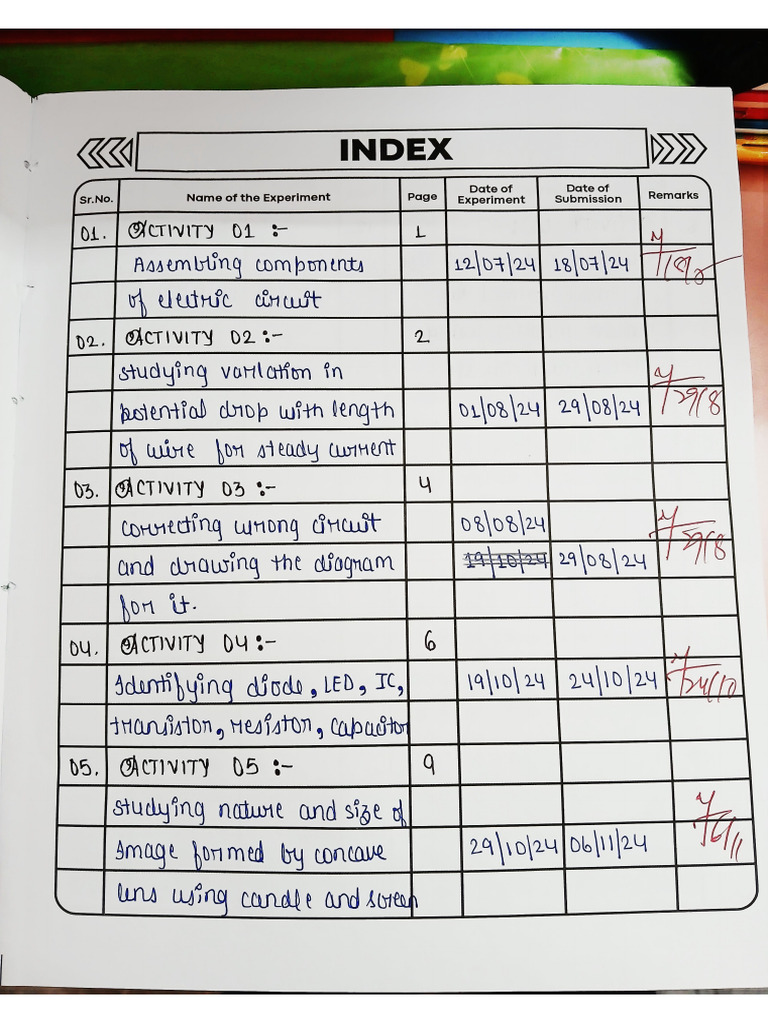 INDEX
Sr.No. Name of the Experiment Page Date of Experiment Date of Submission Remarks
01. ACTIVITY 01 :- 1
Assembling components 12/07/24 18/07/24
of electric circuit
02. ACTIVITY 02 :- 2
studying variation in
potential drop with length 01/08/24 29/08/24 29/8
of wire for steady current
03. ACTIVITY 03 :- 4
correcting wrong circuit 08/08/24
and drawing the diagram 19/10/24 29/08/24 29/8
for it.
04. ACTIVITY 04 :- 6
Identifying diode, LED, IC, 19/10/24 24/10/24 24/10
transistor, resistor, capacitor
05. ACTIVITY 05 :- 9
studying nature and size of
Image formed by concave 29/10/24 06/11/24 6/11
lens using candle and screen